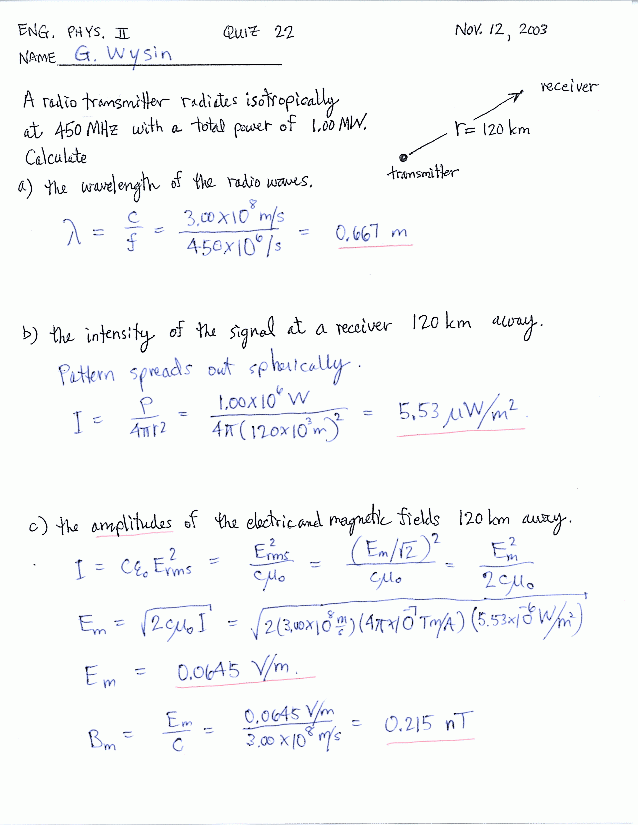 ENG. PHYS. II QUIZ 22 NOV. 12, 2003
NAME G. Wysin
A radio transmitter radiates isotropically
at 450 MHz with a total power of 1.00 MW.
Calculate
receiver
r = 120 km
transmitter
a) the wavelength of the radio waves.
λ = c/f = 3.00×10⁸ m/s / 450×10⁶/s = 0.667 m
b) the intensity of the signal at a receiver 120 km away.
Pattern spreads out spherically.
I = P/4πr² = 1.00×10⁶ W / 4π(120×10³ m)² = 5.53 μW/m².
c) the amplitudes of the electric and magnetic fields 120 km away.
I = cε₀E²rms = E²rms/cμ₀ = (Em/√2)²/cμ₀ = E²m/2cμ₀
Em = √(2cμ₀I) = √(2(3.00×10⁸ m/s)(4π×10⁻⁷ Tm/A)(5.53×10⁻⁶ W/m²))
Em = 0.0645 V/m.
Bm = Em/c = 0.0645 V/m / 3.00×10⁸ m/s = 0.215 nT